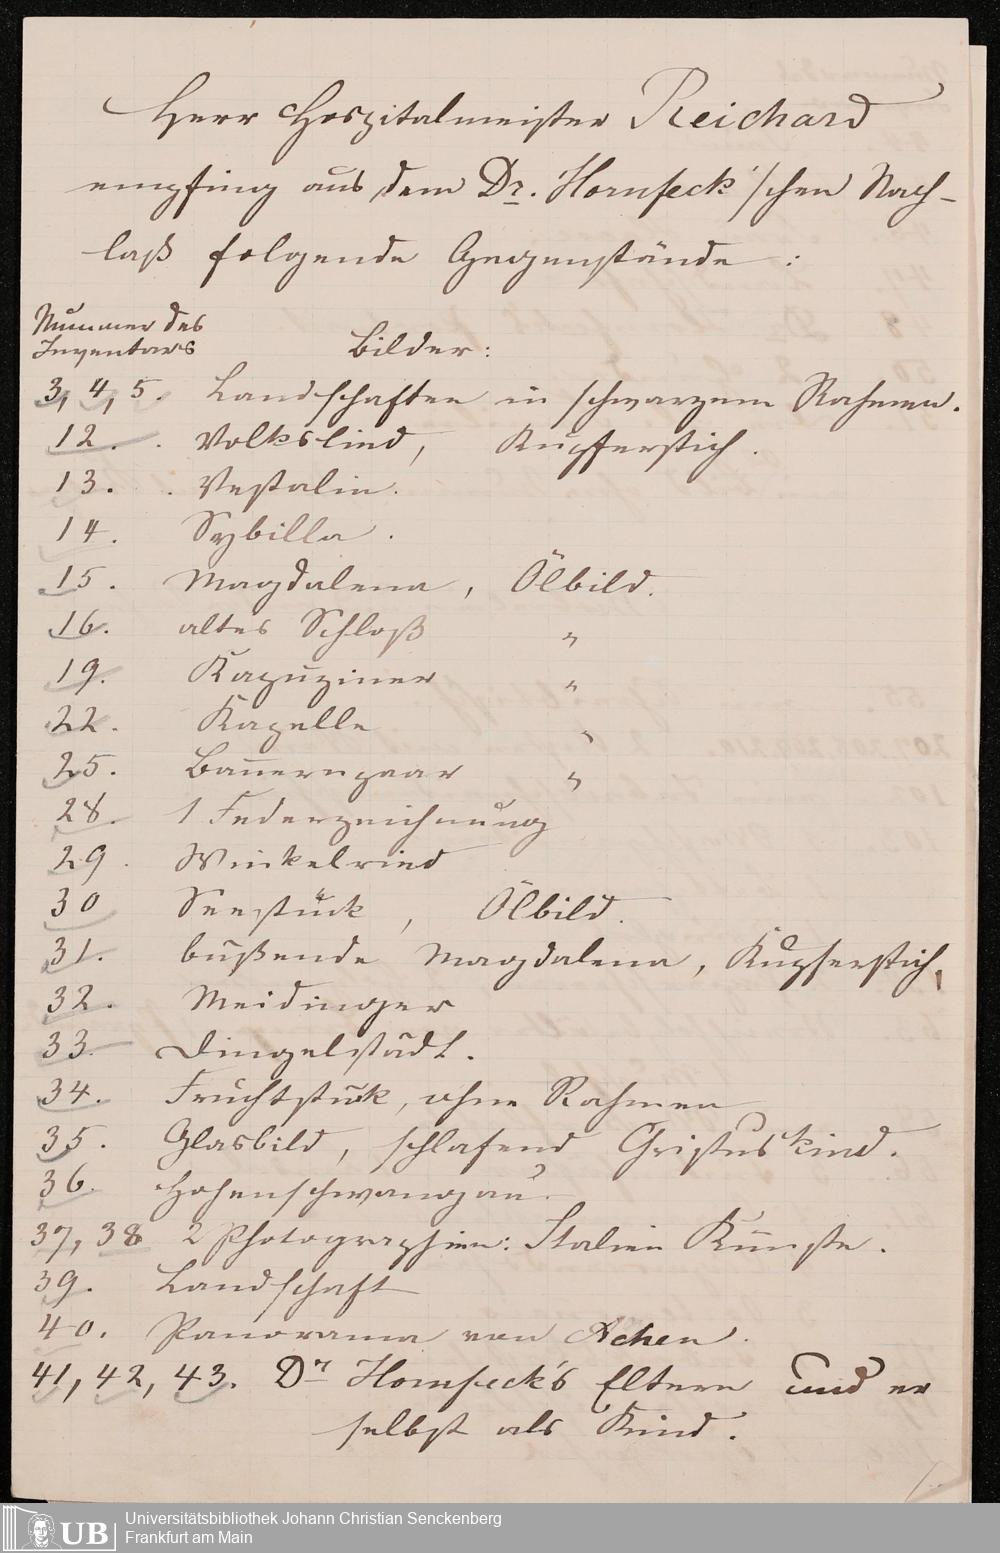 Herr Hospitalmeister Reichard
empfing aus dem Dr. Hornfeck'schen Nach-
laß folgende Gegenstände:
Nummer des
Inventars
Bilder:
3, 4, 5. Landschaften in schwarzem Rahmen.
12. Volkslied, Kupferstich.
13. Vestalin.
14. Sybilla.
15. Magdalena, Ölbild.
16. altes Schloß "
19. Kapuziner "
22. Kapelle "
25. Bauernpaar "
28. 1 Federzeichnung
29. Winkelried
30 Seestück, Ölbild.
31. büßende Magdalena, Kupferstich,
32. Meidinger
33. Dingelstädt.
34. Fruchtstük, ohne Rahmen
35. Glasbild, schlafend Christuskind.
36. Hohenschwangau.
37, 38 2 Photographien: Italien Künste.
39. Landschaft
40. Panorama von Achen.
41, 42, 43. Dr Hornfeck's Eltern und er
selbst als Kind.
UB Universitätsbibliothek Johann Christian Senckenberg
Frankfurt am Main